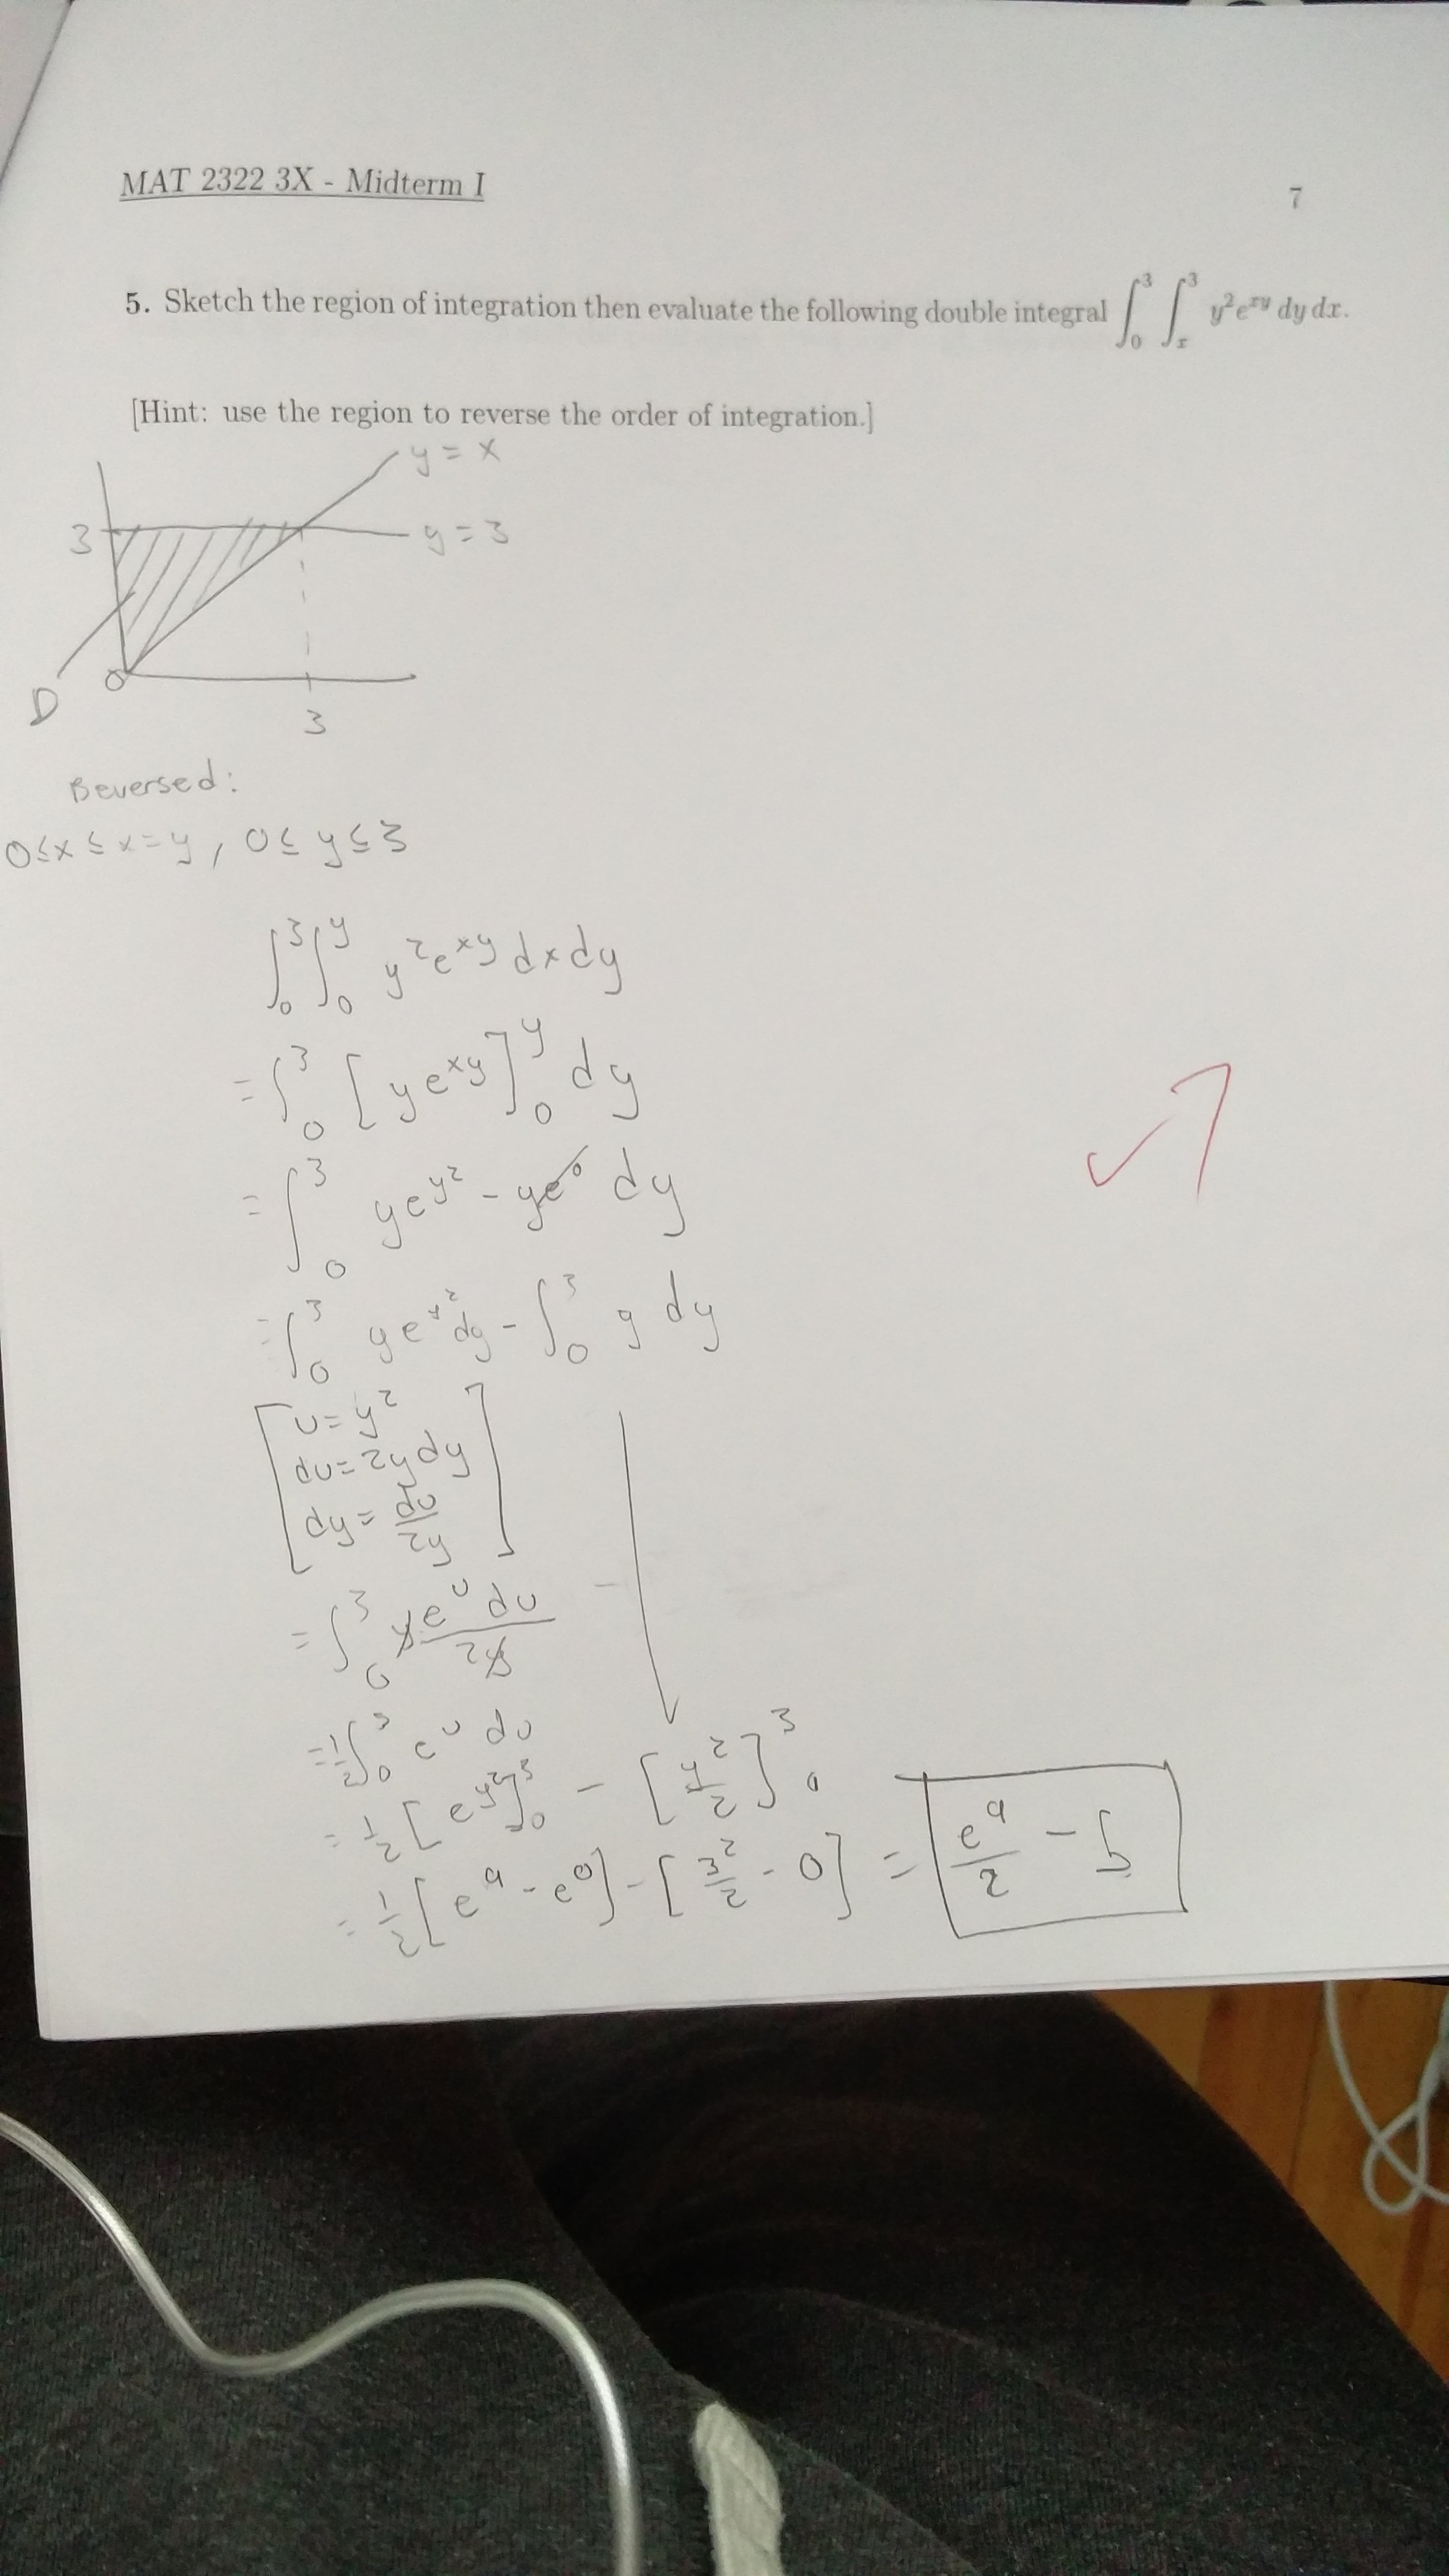 MAT 2322 3X - Midterm I
7
5. Sketch the region of integration then evaluate the following double integral ∫₀³ ∫ₓ³ y²e^{xy} dy dx.
[Hint: use the region to reverse the order of integration.]
y = x
3
y = 3
D
0
3
Reversed:
0≤x≤x=y, 0≤y≤3
∫₀³∫₀^y y²e^{xy} dx dy
= ∫₀³ [ye^{xy}]₀^y dy
= ∫₀³ ye^{y²} - ye⁰ dy
= ∫₀³ ye^{y²} dy - ∫₀³ y dy
[u = y²
du = 2y dy
dy = du/2y]
= ∫₀³ ye^u du/2y -
= 1/2 ∫₀³ e^u du
= 1/2 [e^{y²}]₀³ - [y²/2]₀³
= 1/2 [e⁹ - e⁰] - [3²/2 - 0] = e⁹/2 - 5
7